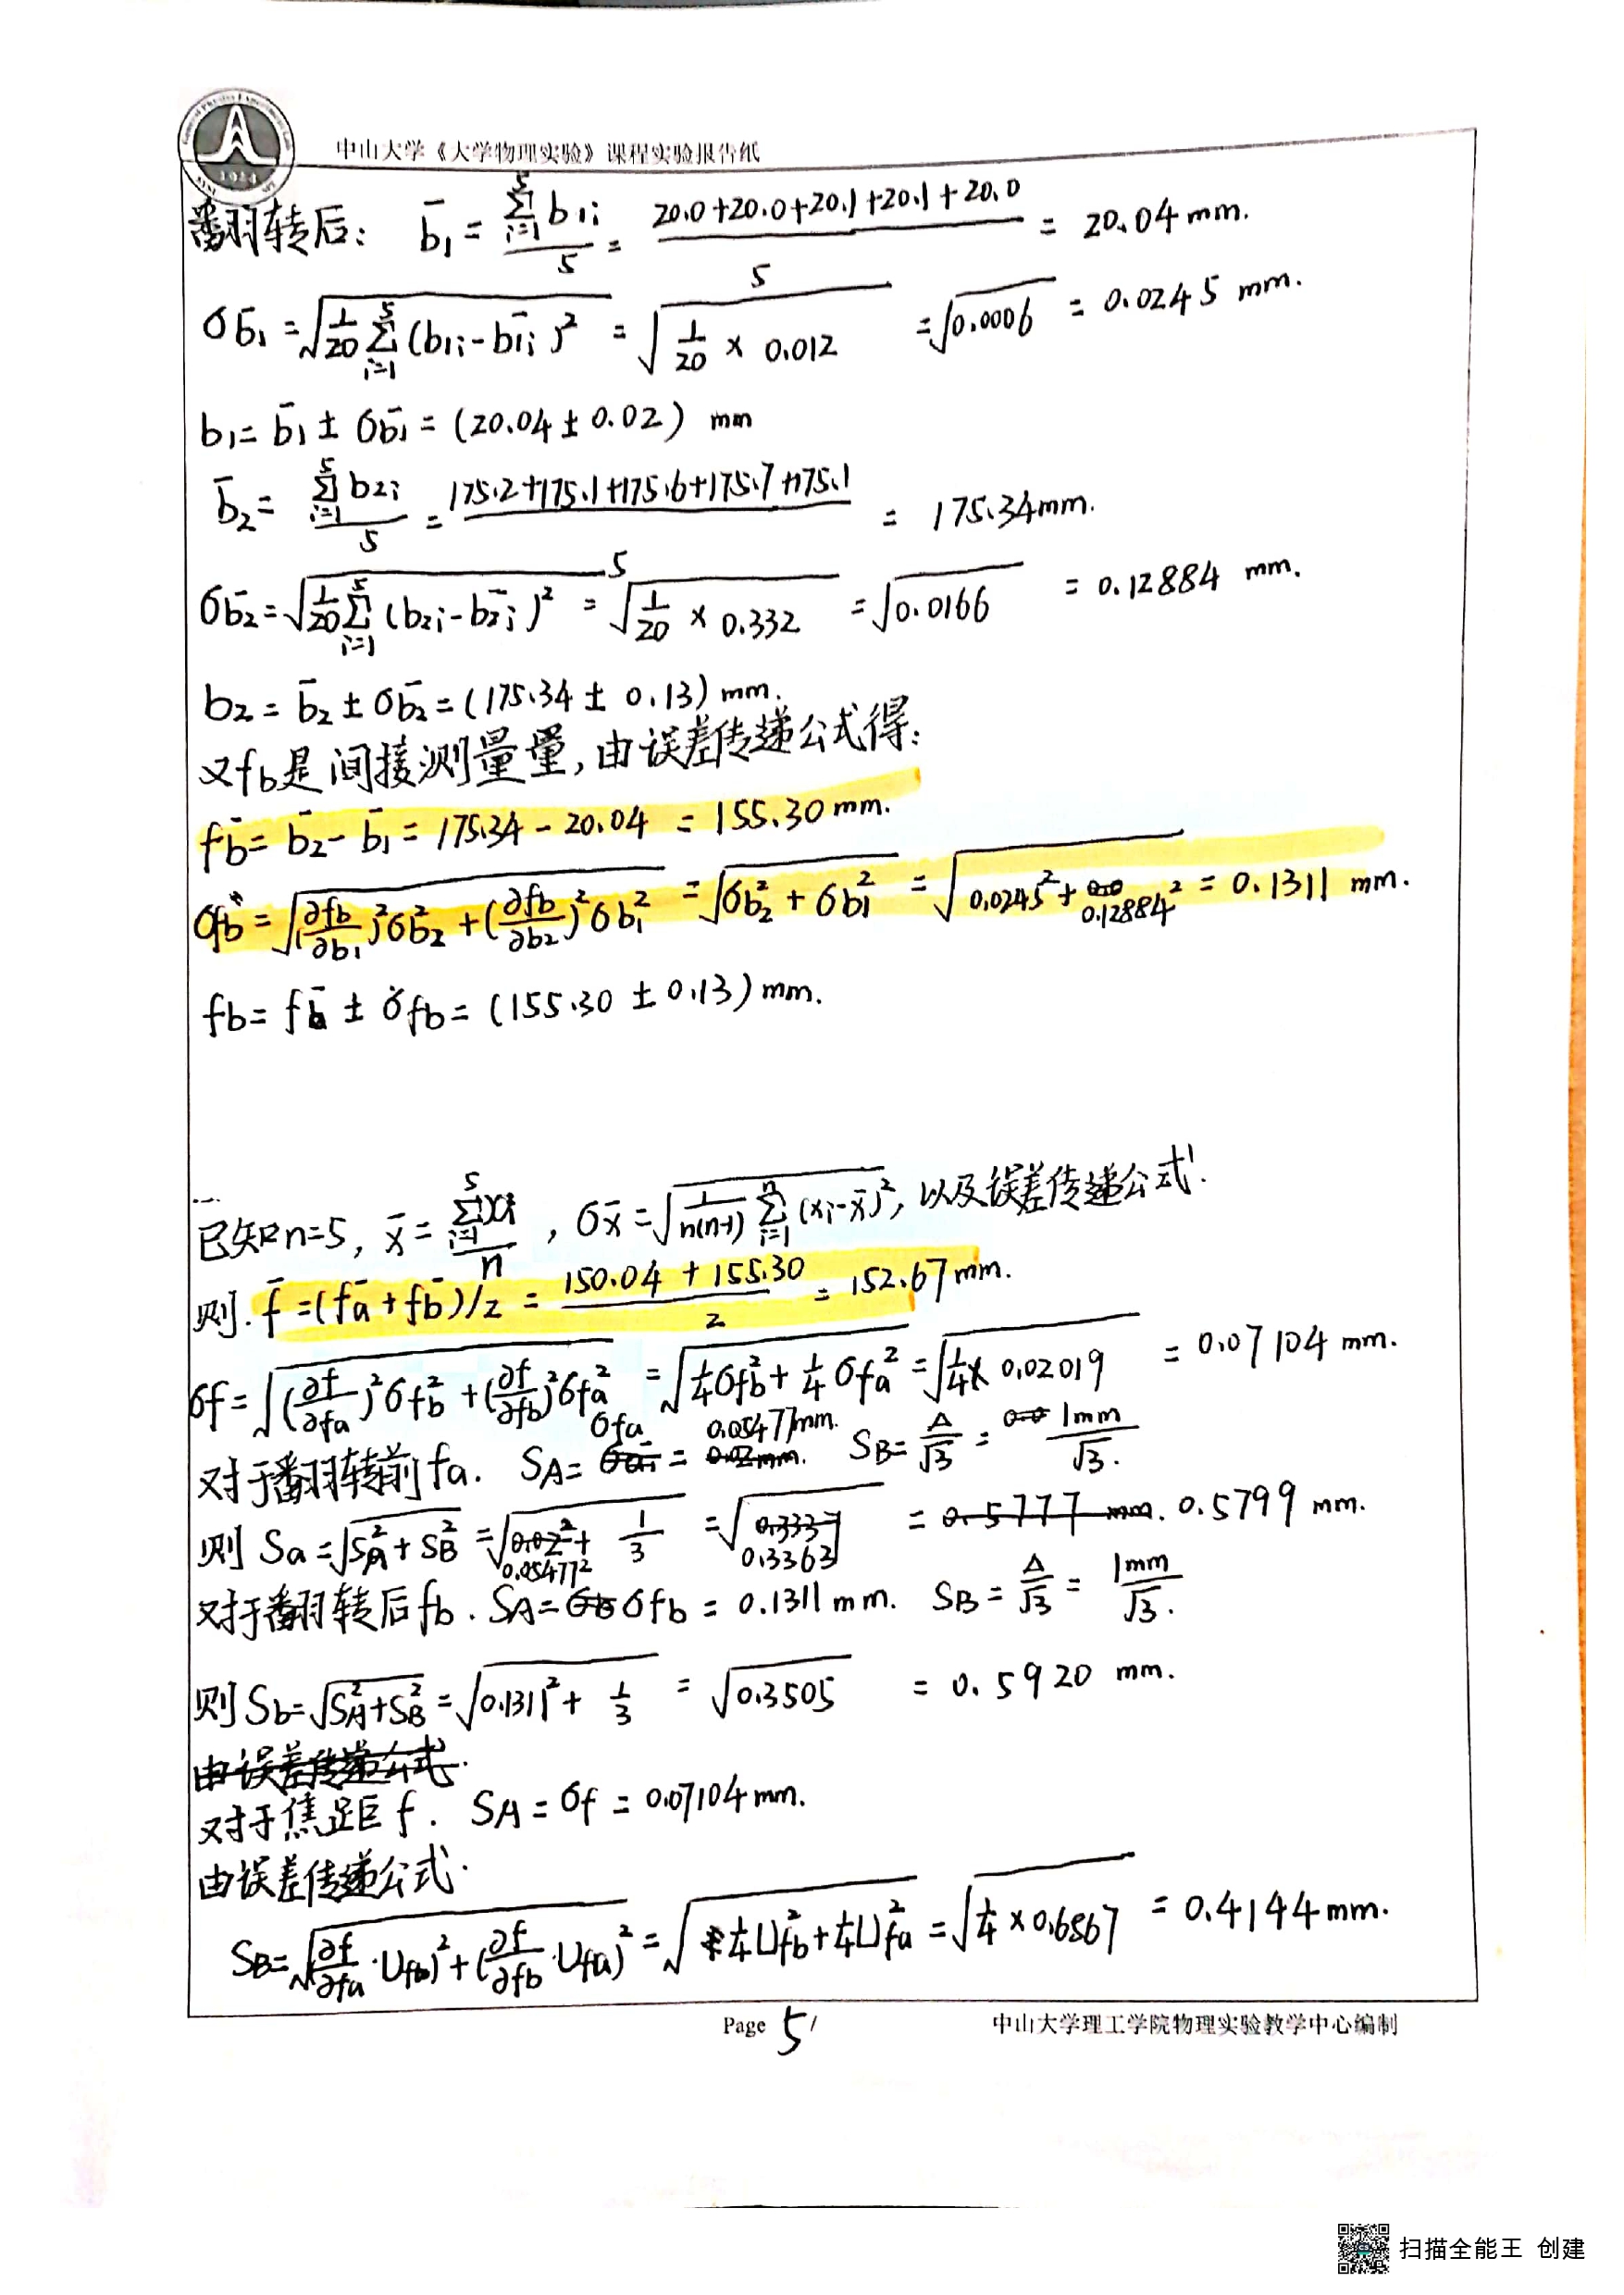 中山大学《大学物理实验》课程实验报告纸
翻转后： b̄₁ = Σ(i=1→5) b₁ᵢ / 5 = (20.0+20.0+20.1+20.1+20.0) / 5 = 20.04 mm.
σb̄₁ = √(1/20 Σ(i=1→5) (b₁ᵢ - b̄₁ᵢ)²) = √(1/20 × 0.012) = √0.0006 = 0.0245 mm.
b₁ = b̄₁ ± σb̄₁ = (20.04 ± 0.02) mm
b̄₂ = Σ(i=1→5) b₂ᵢ / 5 = (175.2+175.1+175.6+175.7+175.1) / 5 = 175.34mm.
σb̄₂ = √(1/20 Σ(i=1→5) (b₂ᵢ - b̄₂ᵢ)²) = √(1/20 × 0.332) = √0.0166 = 0.12884 mm.
b₂ = b̄₂ ± σb̄₂ = (175.34 ± 0.13) mm.
又fb是间接测量量，由误差传递公式得：
fb̄ = b̄₂ - b̄₁ = 175.34 - 20.04 = 155.30 mm.
σfb̄ = √((∂fb/∂b₁)²σb₂² + (∂fb/∂b₂)²σb₁²) = √(σb₂² + σb₁²) = √(0.0245² + 0.12884²) = 0.1311 mm.
fb = fb̄ ± σfb = (155.30 ± 0.13) mm.
已知n=5, x̄ = Σ(i=1→5) xᵢ / n , σx̄ = √(1/n(n-1) Σ(i=1→n) (xᵢ-x̄)²), 以及误差传递公式.
则. f̄ = (fā + fb̄)/2 = (150.04 + 155.30) / 2 = 152.67 mm.
σf = √((∂f/∂fa)²σfb² + (∂f/∂fb)²σfa²) = √(1/4σfb² + 1/4σfa²) = √(1/4 × 0.02019) = 0.07104 mm.
对于翻转前fa. SA = σfa = 0.05477mm. SB = Δ/√3 = 1mm/√3.
则 Sa = √(SA² + SB²) = √(0.05477² + 1/3) = √0.3363 = 0.5799 mm.
对于翻转后fb. SA = σfb = 0.1311 mm. SB = Δ/√3 = 1mm/√3.
则 Sb = √(SA²+SB²) = √(0.1311² + 1/3) = √0.3505 = 0.5920 mm.
由误差传递公式.
对于焦距f. SA = σf = 0.07104 mm.
由误差传递公式.
SB = √((∂f/∂fa · Ufb)² + (∂f/∂fb · Ufa)²) = √(1/4U²fb + 1/4U²fa) = √(1/4 × 0.6867) = 0.4144 mm.
Page 5/ 中山大学理工学院物理实验教学中心编制
扫描全能王 创建